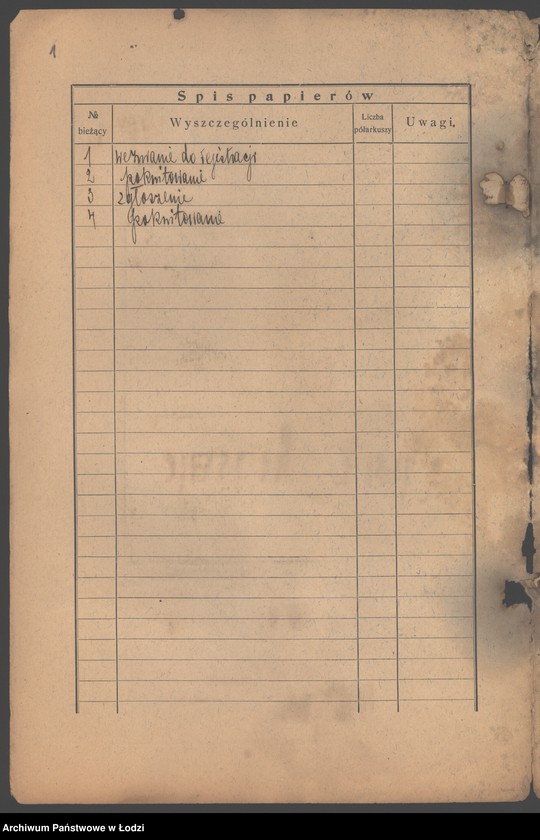 1
Spis papierów
№ bieżący Wyszczególnienie Liczba półarkuszy Uwagi.
1 wezwanie do rejestracji
2 pokwitowanie
3 zgłoszenie
4 pokwitowanie
Archiwum Państwowe w Łodzi